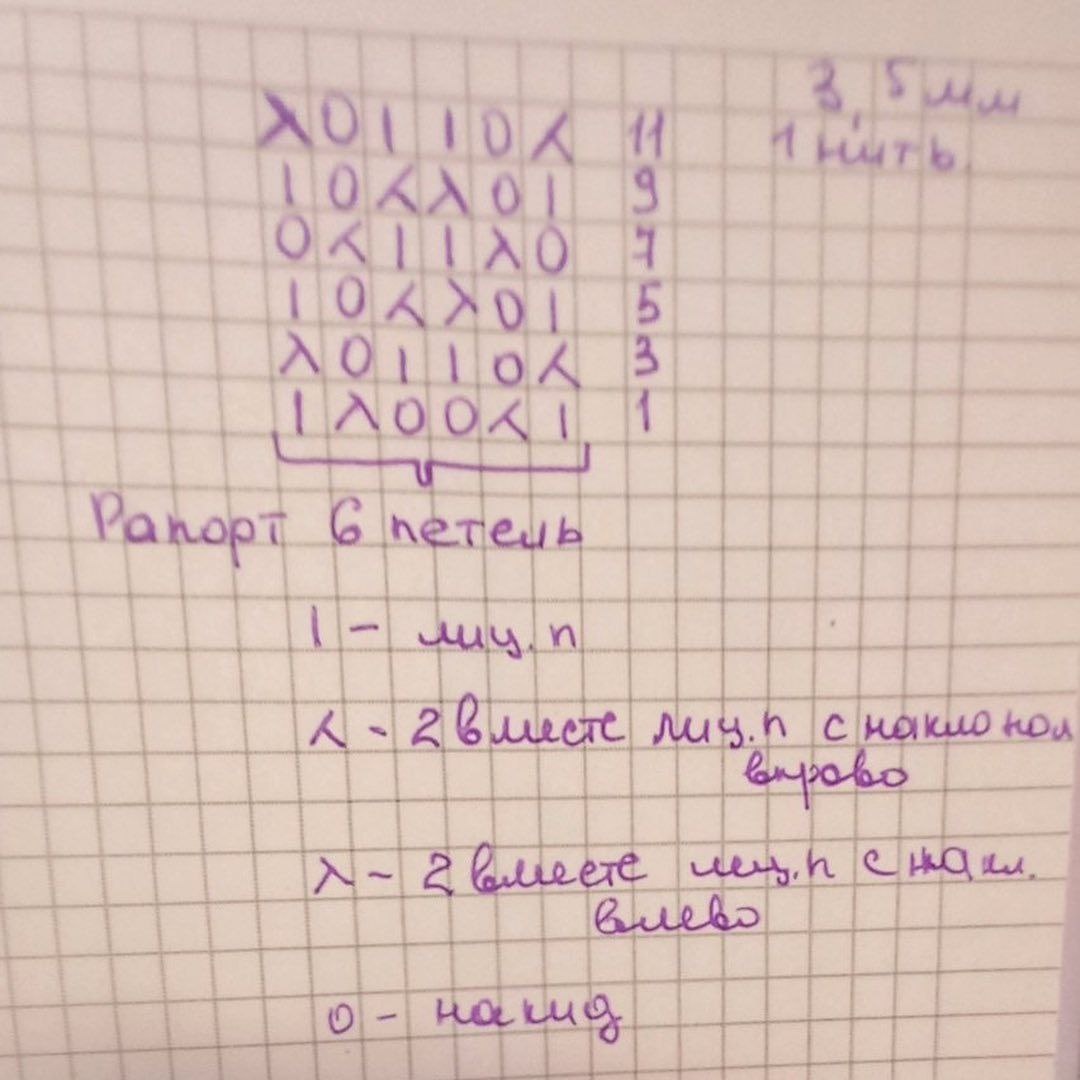 3,5мм
1 нить.
λ 0 | | 0 ⅄ 11
| 0 ⅄ λ 0 | 9
0 ⅄ | | λ 0 7
| 0 ⅄ λ 0 | 5
λ 0 | | 0 ⅄ 3
| λ 0 0 ⅄ | 1
Рапорт 6 петель
| - лиц. п
⅄ - 2 вместе лиц. п с наклоном
вправо
λ - 2 вместе лиц. п с накл.
влево
0 - накид